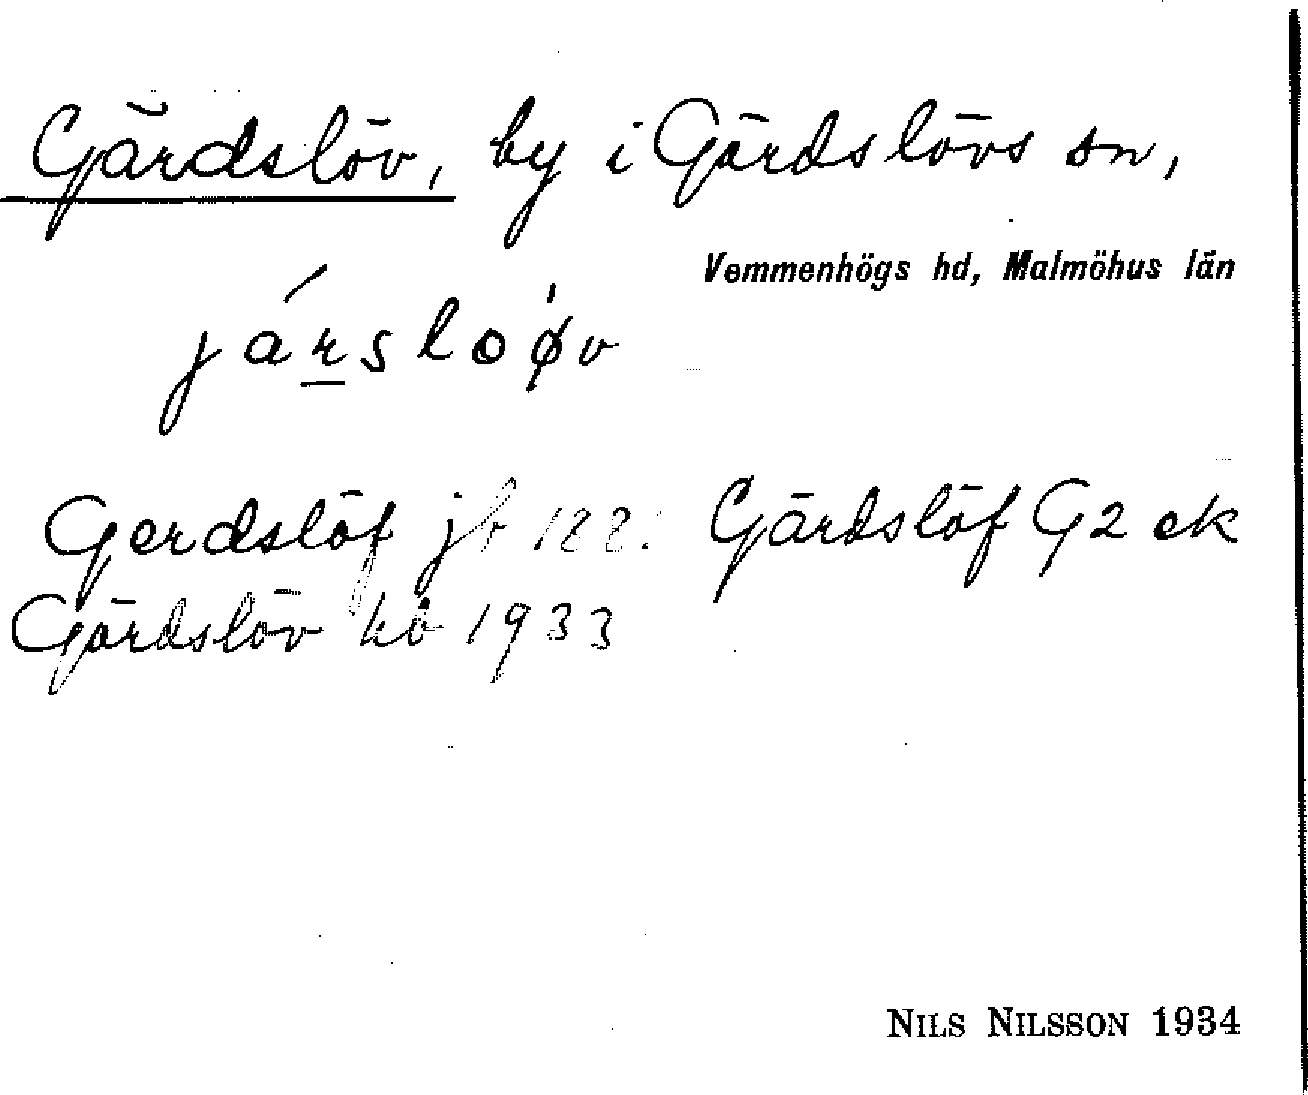 Gärdslöv, by i Gärdslövs sn,
Vemmenhögs hd, Malmöhus län
jársloǿv
Gerdslöf jb Gärdslöf G2 ek
Gärdslöv kb 1933
NILS NILSSON 1934